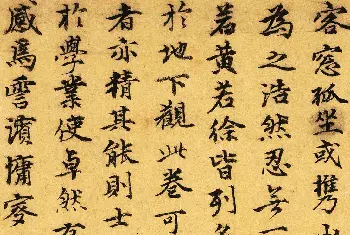 客窓孤坐或攜
為之浩然忍無
若黃若徐皆列名
於地下觀此卷可
者亦精其能則士
於學業使卓然有
感焉雪濆慵